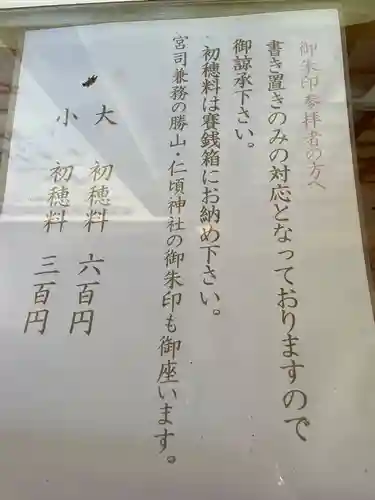 御朱印参拝者の方へ
書き置きのみの対応となっておりますので
御諒承下さい。
初穂料は賽銭箱にお納め下さい。
宮司兼務の勝山・仁頃神社の御朱印も御座います。
大 初穂料 六百円
小 初穂料 三百円